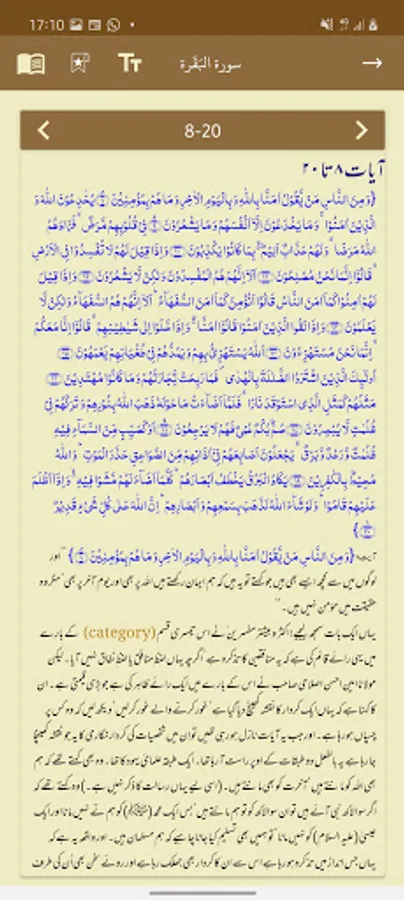 17:10
سورة البَقَرة
8-20
آیات ۸ تا ۲۰
{وَمِنَ النَّاسِ مَنْ يَّقُوْلُ اٰمَنَّا بِاللّٰهِ وَبِالْيَوْمِ الْاٰخِرِ وَمَا هُمْ بِمُؤْمِنِيْنَ ۝ يُخٰدِعُوْنَ اللّٰهَ وَ
الَّذِيْنَ اٰمَنُوْا ۚ وَمَا يَخْدَعُوْنَ اِلَّآ اَنْفُسَهُمْ وَمَا يَشْعُرُوْنَ ۝ فِىْ قُلُوْبِهِمْ مَّرَضٌ ۙ فَزَادَهُمُ
اللّٰهُ مَرَضًا ۚ وَلَهُمْ عَذَابٌ اَلِيْمٌۢ ۙ بِمَا كَانُوْا يَكْذِبُوْنَ ۝ وَاِذَا قِيْلَ لَهُمْ لَا تُفْسِدُوْا فِى الْاَرْضِ
ۙ قَالُوْٓا اِنَّمَا نَحْنُ مُصْلِحُوْنَ ۝ اَلَآ اِنَّهُمْ هُمُ الْمُفْسِدُوْنَ وَلٰكِنْ لَّا يَشْعُرُوْنَ ۝ وَاِذَا قِيْلَ
لَهُمْ اٰمِنُوْا كَمَآ اٰمَنَ النَّاسُ قَالُوْٓا اَنُؤْمِنُ كَمَآ اٰمَنَ السُّفَهَآءُ ۭ اَلَآ اِنَّهُمْ هُمُ السُّفَهَآءُ وَلٰكِنْ لَّا
يَعْلَمُوْنَ ۝ وَاِذَا لَقُوا الَّذِيْنَ اٰمَنُوْا قَالُوْٓا اٰمَنَّا ۚ وَاِذَا خَلَوْا اِلٰى شَيٰطِيْنِهِمْ ۙ قَالُوْٓا اِنَّا مَعَكُمْ
ۙ اِنَّمَا نَحْنُ مُسْتَهْزِءُوْنَ ۝ اَللّٰهُ يَسْتَهْزِئُ بِهِمْ وَيَمُدُّهُمْ فِىْ طُغْيَانِهِمْ يَعْمَهُوْنَ ۝
اُولٰٓئِكَ الَّذِيْنَ اشْتَرَوُا الضَّلٰلَةَ بِالْهُدٰى ۠ فَمَا رَبِحَتْ تِّجَارَتُهُمْ وَمَا كَانُوْا مُهْتَدِيْنَ ۝
مَثَلُهُمْ كَمَثَلِ الَّذِى اسْتَوْقَدَ نَارًا ۚ فَلَمَّآ اَضَآءَتْ مَا حَوْلَهٗ ذَهَبَ اللّٰهُ بِنُوْرِهِمْ وَتَرَكَهُمْ فِىْ
ظُلُمٰتٍ لَّا يُبْصِرُوْنَ ۝ صُمٌّۢ بُكْمٌ عُمْىٌ فَهُمْ لَا يَرْجِعُوْنَ ۝ اَوْ كَصَيِّبٍ مِّنَ السَّمَآءِ فِيْهِ
ظُلُمٰتٌ وَّرَعْدٌ وَّبَرْقٌ ۚ يَجْعَلُوْنَ اَصَابِعَهُمْ فِىْٓ اٰذَانِهِمْ مِّنَ الصَّوَاعِقِ حَذَرَ الْمَوْتِ ۭ وَاللّٰهُ
مُحِيْطٌۢ بِالْكٰفِرِيْنَ ۝ يَكَادُ الْبَرْقُ يَخْطَفُ اَبْصَارَهُمْ ۭ كُلَّمَآ اَضَآءَ لَهُمْ مَّشَوْا فِيْهِ ڎ وَاِذَآ اَظْلَمَ
عَلَيْهِمْ قَامُوْا ۭ وَلَوْ شَآءَ اللّٰهُ لَذَهَبَ بِسَمْعِهِمْ وَاَبْصَارِهِمْ ۭ اِنَّ اللّٰهَ عَلٰى كُلِّ شَىْءٍ قَدِيْرٌ
۝}
آیت ۸ {وَمِنَ النَّاسِ مَنْ يَّقُوْلُ اٰمَنَّا بِاللّٰهِ وَبِالْيَوْمِ الْاٰخِرِ وَمَا هُمْ بِمُؤْمِنِيْنَ ۝} ’’اور
لوگوں میں سے کچھ ایسے بھی ہیں جو کہتے تو یہ ہیں کہ ہم ایمان رکھتے ہیں اللہ پر بھی اور یوم آخر پر بھی‘ مگر وہ
حقیقت میں مؤمن نہیں ہیں۔‘‘
یہاں ایک بات سمجھ لیجیے! اکثر و بیشتر مفسرین نے اس تیسری قسم (category) کے بارے
میں یہی رائے قائم کی ہے کہ یہ منافقین کا تذکرہ ہے‘ اگرچہ یہاں لفظ منافق یا لفظ نفاق نہیں آیا۔ لیکن
مولانا امین احسن اصلاحی صاحب نے اس کے بارے میں ایک رائے ظاہر کی ہے جو بڑی قیمتی ہے۔ ان
کا کہنا ہے کہ یہاں ایک کردار کا نقشہ کھینچ دیا گیا ہے‘ غور کرنے والے غور کر لیں‘ دیکھ لیں کہ وہ کس پر
چسپاں ہو رہا ہے۔ اور جب یہ آیات نازل ہو رہی تھیں تو ان میں شخصیات کی کردار نگاری کا یہ جو نقشہ کھینچا
جا رہا ہے یہ بالفعل دو طبقات کے اوپر راست آ رہا تھا۔ ایک طبقہ علمائے یہود کا تھا۔ وہ بھی کہتے تھے کہ ہم
بھی اللہ کو مانتے ہیں‘ آخرت کو بھی مانتے ہیں۔ (اسی لیے یہاں رسالت کا ذکر نہیں ہے۔) وہ کہتے تھے کہ
اگر سوا لاکھ نبی آئے ہیں تو ان سوا لاکھ کو تو ہم مانتے ہیں‘ بس ایک محمد (ﷺ) کو ہم نے نہیں مانا اور ایک
عیسیٰ (علیہ السلام) کو نہیں مانا‘ تو ہمیں بھی تسلیم کیا جانا چاہیے کہ ہم مسلمان ہیں۔ اور واقعہ یہ ہے کہ
یہاں جس انداز میں تذکرہ ہو رہا ہے اس سے ان کا کردار بھی جھلک رہا ہے اور روئے سخن بھی اُن کی طرف